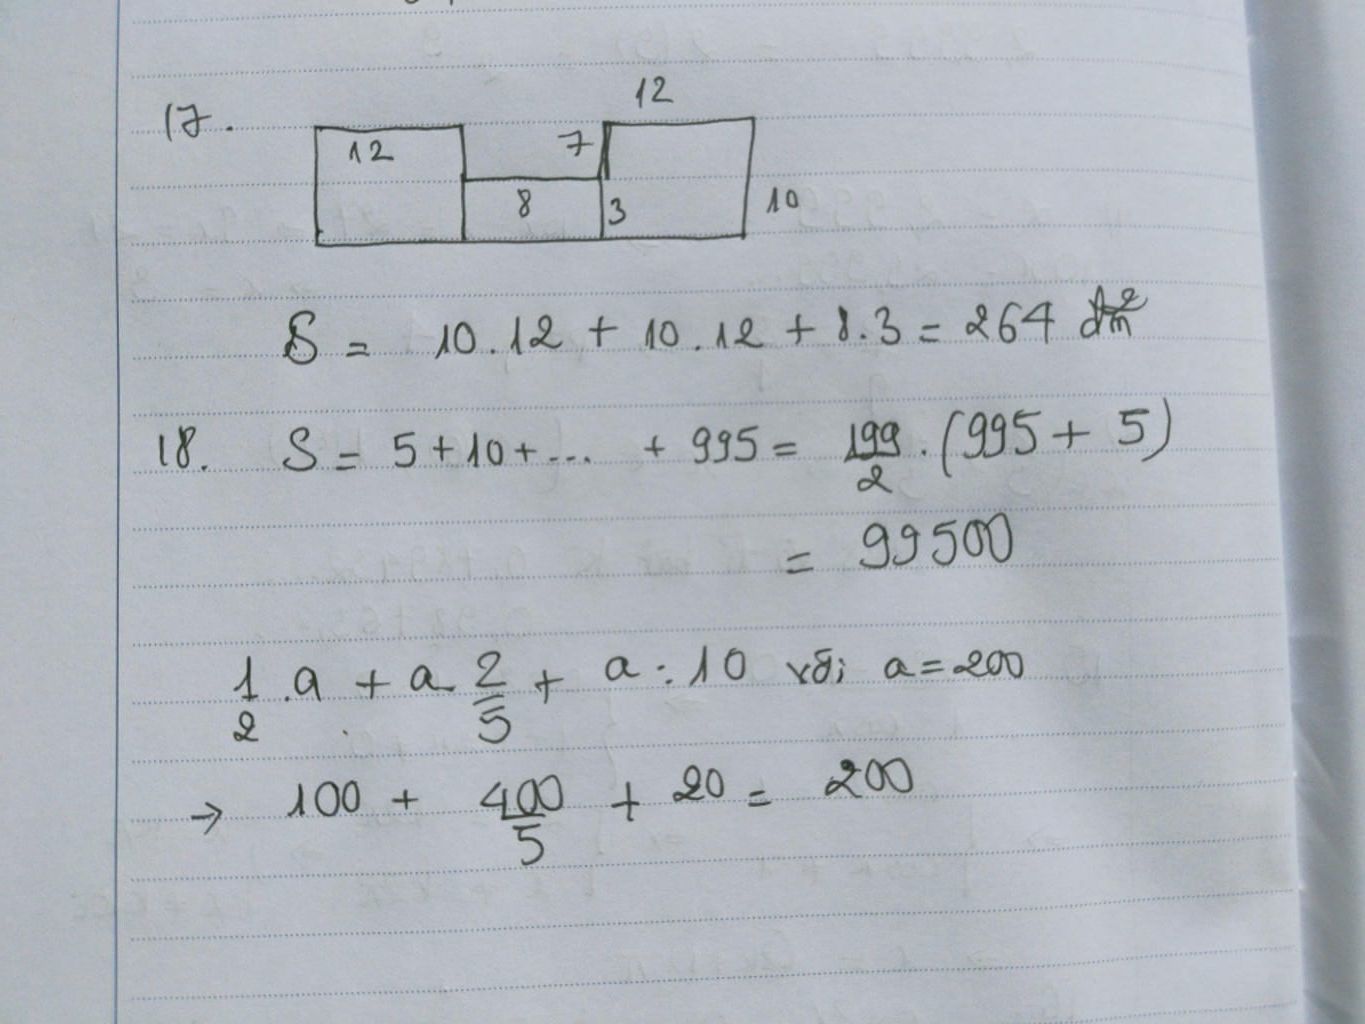 17.
12
12
7
8
3
10
S = 10.12 + 10.12 + 8.3 = 264 dm²
18. S = 5+10+... + 995 = 199/2 . (995 + 5)
= 99500
1/2 .a + a. 2/5 + a : 10 với a = 200
→ 100 + 400/5 + 20 = 200